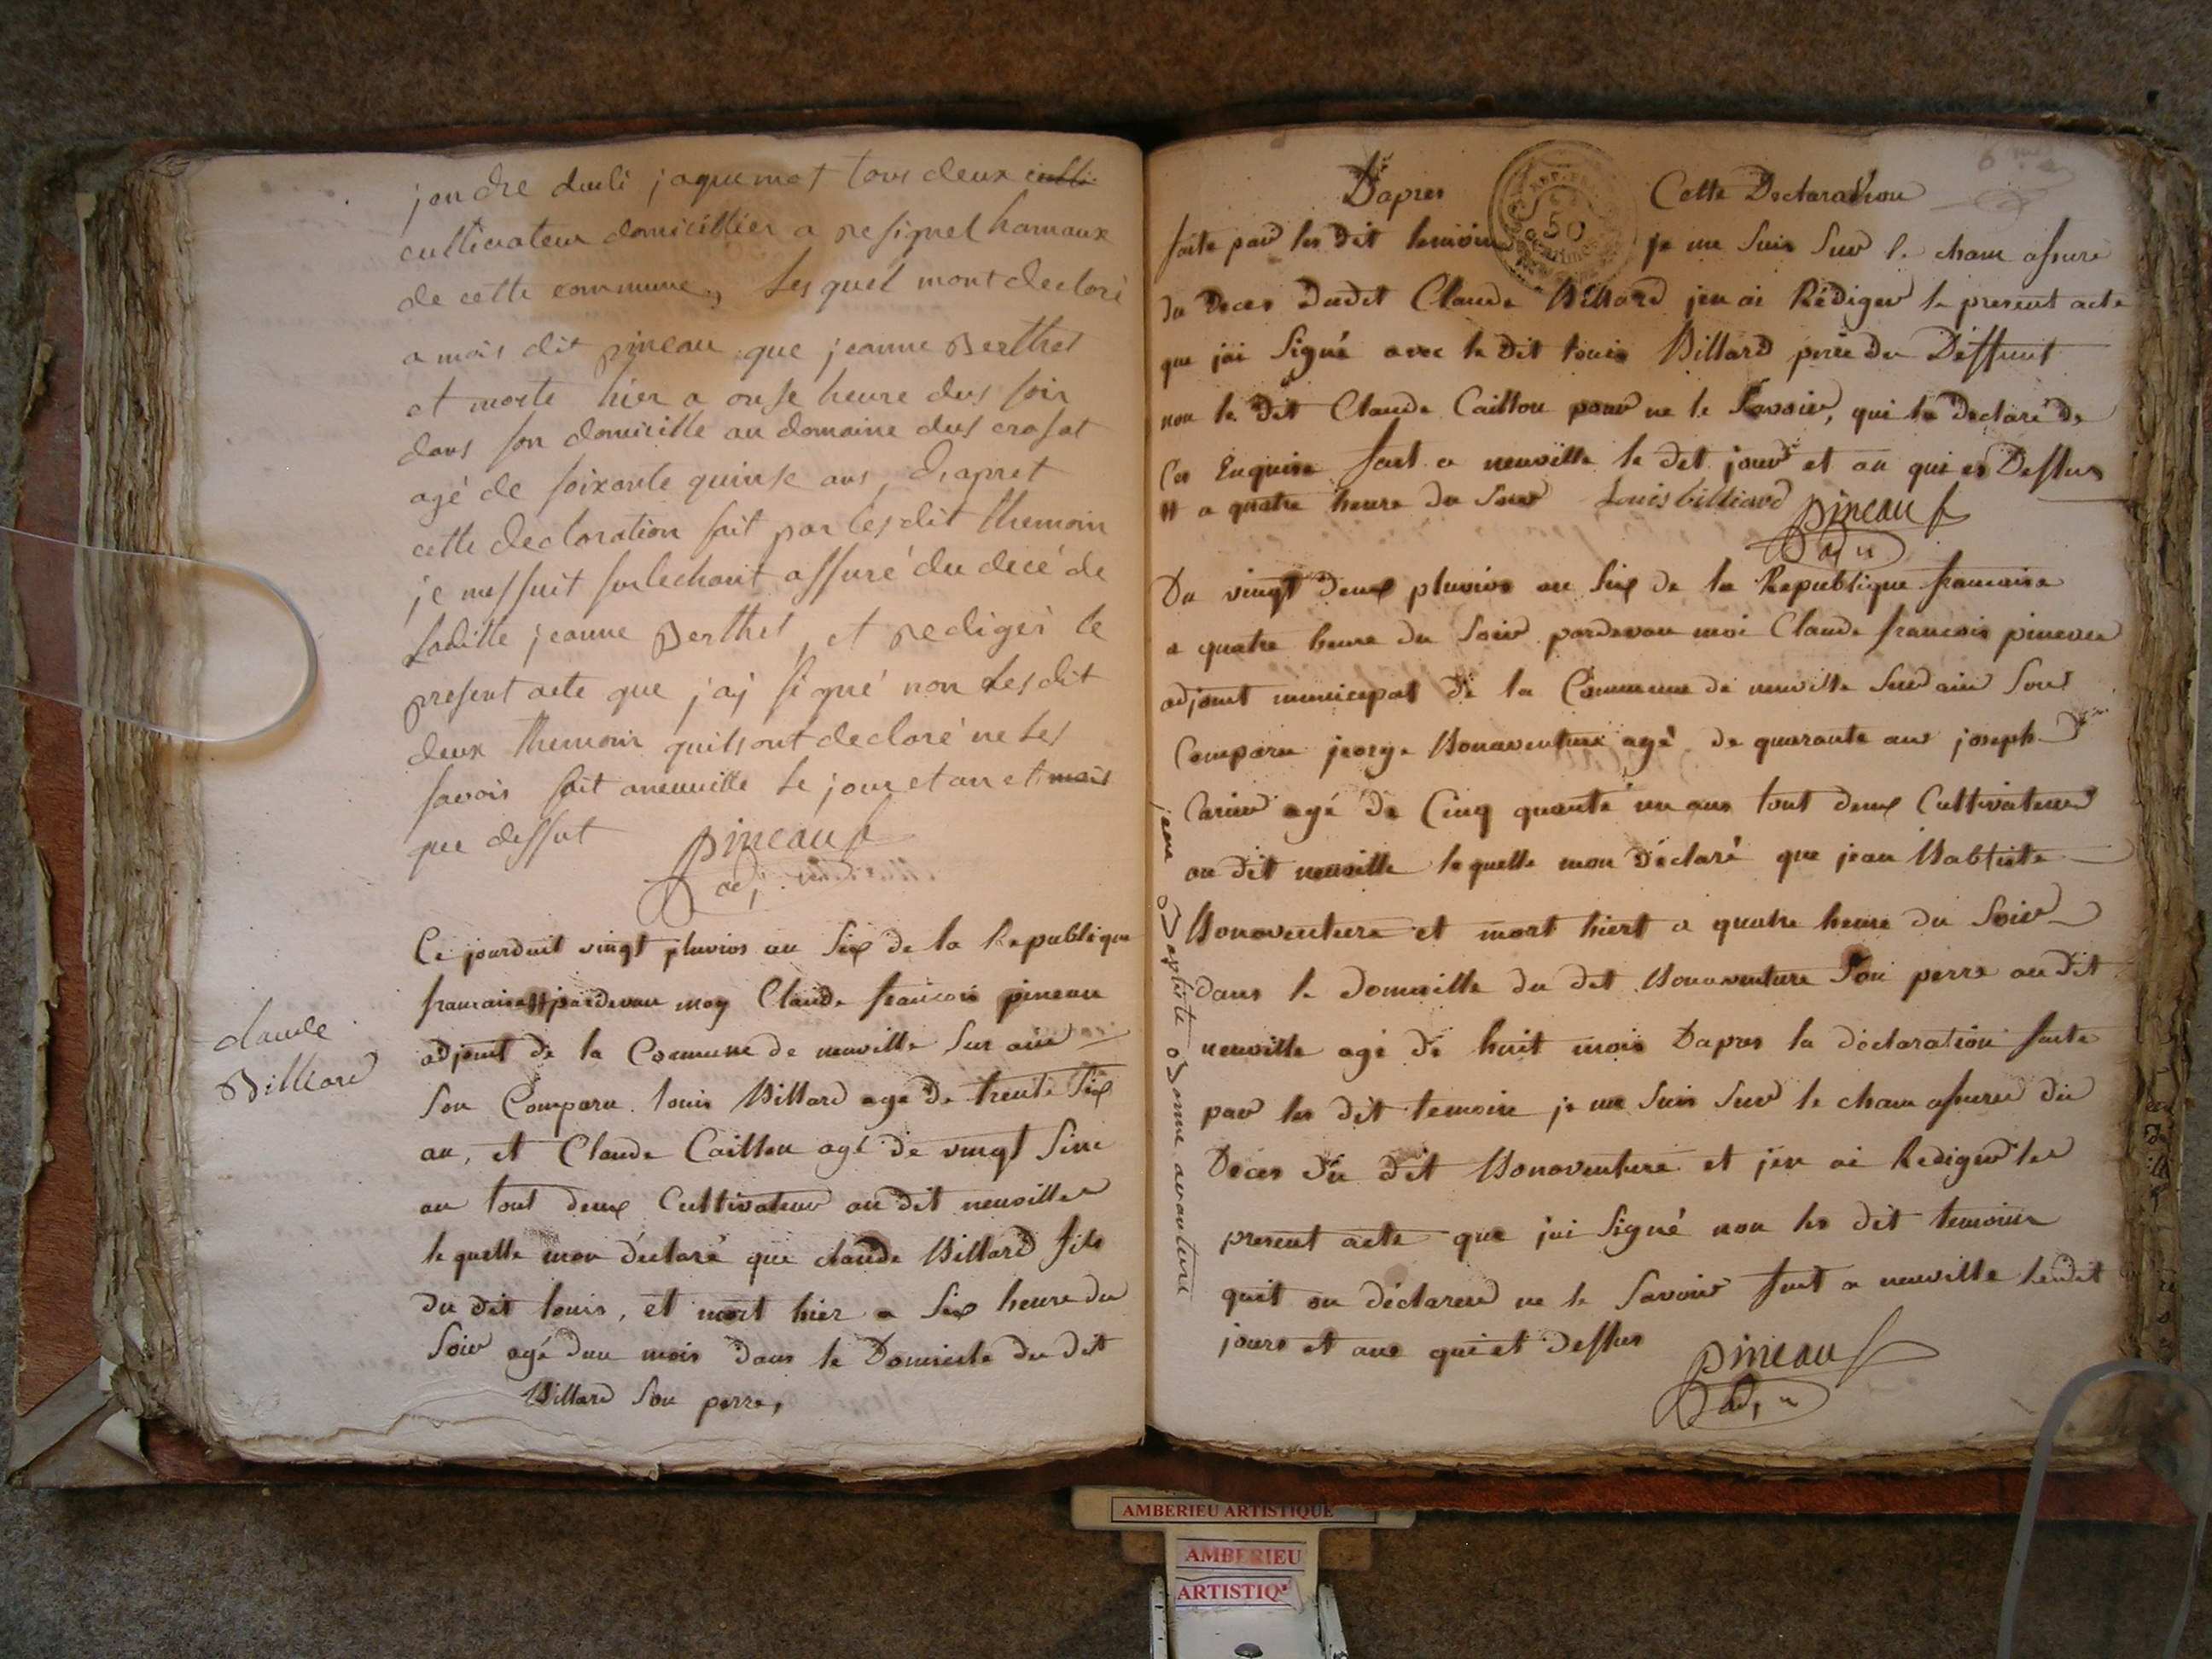 jendre dudi jaquemot tous deux culti
cultivateur domicillier a resignel hamaux
de cette commune, Les quel mont declaré
a mois dit pineau que jeanne Berthet
et morte hier a onse heure dus soir
dans son domicille au domaine dus crosat
agé de soixante quinse ans, Diapret
cette declaration fait par les dit themoin
je messuit surlechant assuré du decé de
Laditte jeanne Berthet, et redigér le
present acte que jaj signé non Les dit
deux themoin quils ont declaré ne Les
savois fait aneuville Le jour et an et mois
que dessut
pineau
adj
Ce jourduit vingt pluvios an Six de la Republique
francaise # pardevan moy Claude francois pineau
adjoint de la Commune de neuville Sur ain
Son Comparu Louis Billard age de trente Six
an, et Claude Caillon agé de vingt Sinc
an tout deux Cultivateur au dit neuville
le quelle mon déclaré que claude Billard fils
du dit louis, et mort hier a Six heure du
Soir agé dun mois dans le Domicile du dit
Billard Son perre,
claude
Billiard
Dapres Cette Declaration
faite par les dit temoin je me Suis Sur le cham assuré
du Deces dudit Claude Billard jen ai Rédiger le present acte
que jai Signé avec le dit louis Billard perre du Deffunt
non le dit Claude Caillon pour ne le Savoir, qui la declaré de
Ces Enquise fait a neuville le dit jour et an qui es Dessus
# a quatre heure du Soir Louis billiard pineau
adj
Du vingt deux pluvios an Six de la Republique francaise
a quatre heure du Soir pardevan moi Claude francois pineau
adjoint municipal de la Commune de neuville Sur ain Sont
Comparu jeorge Bonaventure agé de quarante ans joseph
Carier agé de Cinquante un ans tout deux Cultivateur
au dit neuville le quelle mon déclaré que jean Babtiste
Bonaventure et mort hiert a quatre heure du Soir
dans le domicille du dit Bonaventure Son perre au dit
neuville agé de huit mois Dapres la déclaration faite
par les dit temoin je me Suis Sur le cham assurer du
Deces du dit Bonaventure et jen ai Rediger le
present acte que jai Signé non les dit temoin
quit on déclarer ne le Savoir fait a neuville ledit
jours et ans qui et Dessus pineau
adj
jean Baptiste Bonne avanture
REP. FRA.
50
AMBERIEU ARTISTIQUE
AMBERIEU
ARTISTIQ